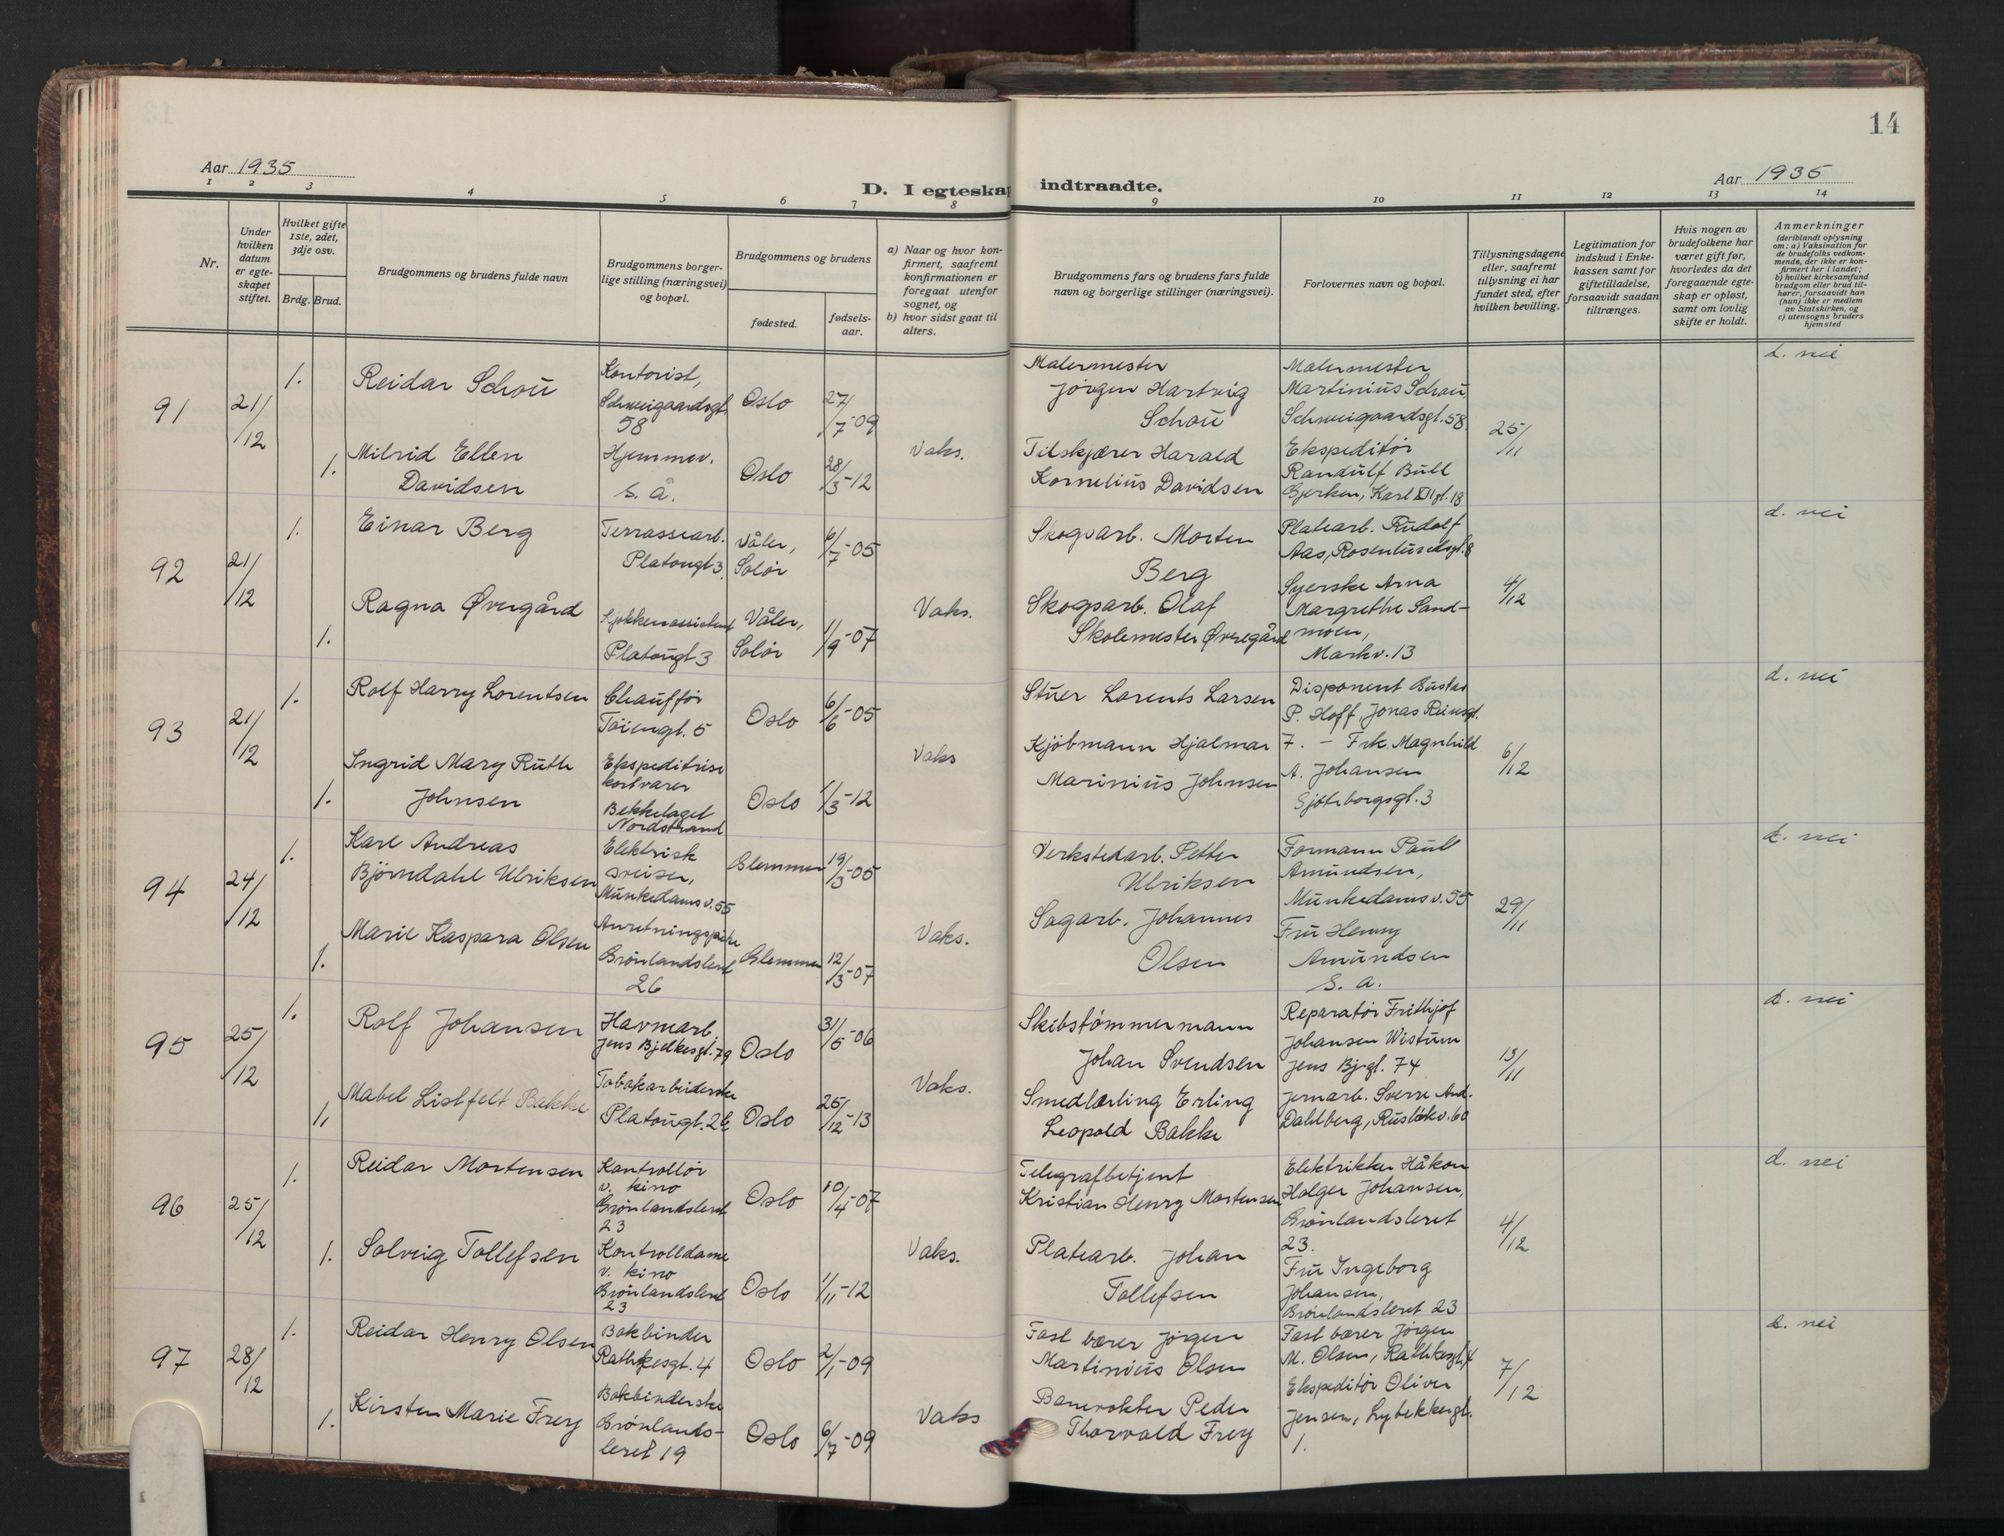 14
Aar 1935
Aar 1935
D. I egteskap indtraadte.
1 2 3 4 5 6 7 8 9 10 11 12 13 14
Nr.
Under hvilken datum er egteskapet stiftet.
Hvilket gifte 1ste, 2det, 3dje osv.
Brdg. Brud.
Brudgommens og brudens fulde navn
Brudgommens borgerlige stilling (næringsvei) og bopæl.
Brudgommens og brudens
fødested.
fødselsaar.
a) Naar og hvor konfirmert, saafremt konfirmationen er foregaat utenfor sognet, og
b) hvor sidst gaat til alters.
Brudgommens fars og brudens fars fulde navn og borgerlige stillinger (næringsvei).
Forlovernes navn og bopæl.
Tillysningsdagene eller, saafremt tillysning ei har fundet sted, efter hvilken bevilling.
Legitimation for indskud i Enkekassen samt for giftetilladelse, forsaavidt saadan tiltrænges.
Hvis nogen av brudefolkene har været gift før, hvorledes da det foregaaende egteskap er opløst, samt om lovlig skifte er holdt.
Anmerkninger
(deriblandt oplysning om: a) Vaksination for de brudefolks vedkommende, der ikke er konfirmert her i landet;
b) hvilket kirkesamfund brudgom eller brud tilhører, forsaavidt han (hun) ikke er medlem av Statskirken, og
c) utensogns bruders hjemsted
91
21/12
1.
Reidar Schou
Kontorist,
Schweigaardsgt.
58
Oslo
27/7-09
Malermester
Jørgen Hartvig
Schou
Malermester
Martinius Schou
Schweigaardsgt. 58
25/11
d. nei
1.
Milrid Ellen
Davidsen
Hjemmev.
s. å.
Oslo
28/3-12
Vaks.
Tilskjærer Harald
Kornelius Davidsen
Ekspeditør
Randulf Bull
Bjerken, Karl XII gt. 18
92
21/12
1.
Einar Berg
Terrassearb.
Platougt 3
Våler,
Solør
6/7-05
Skogsarb. Morten
Berg
Platearb. Rudolf
Aas, Rosenlundsgt. 8
4/12
d. nei
1.
Ragna Øvregård
Kjøkkenassistent
Platougt 3
Våler,
Solør
1/9-07
Vaks.
Skogsarb. Olaf
Skolemester Øvregård
Syerske Arna
Margrethe Sand-
moen,
Markv. 13
93
21/12
1.
Rolf Harry Lorentsen
Chauffør
Tøiengt. 5
Oslo
6/6-05
Stuer Lorents Larsen
Disponent Gustav
P. Hoff, Jonas Reinsgt.
6/12
d. nei
1.
Ingrid Mary Ruth
Johnsen
Ekspeditrise
kortvarer
Bekkelaget
Nordstrand
Oslo
1/3-12
Vaks
Kjøbmann Hjalmar
Marinius Johnsen
7. - Frk. Magnhild
A. Johansen
Gjøteborgsgt. 3
94
24/12
1.
Kare Andreas
Bjørndahl Ulriksen
Elektrisk
sveiser,
Munkedamsv. 55
Glemmen
19/3-05
Verkstedarb. Petter
Ulriksen
Formann Paul
Amundsen,
Munkedamsv. 55
29/11
d. nei
1.
Marie Kaspara Olsen
Anretningspike
Grønlandsleret
26
Glemmen
12/3-07
Vaks.
Sagarb. Johannes
Olsen
Fru Henny
Amundsen
s. a.
95
25/12
1.
Rolf Johansen
Havnarb.
Jens Bjelkesgt. 79
Oslo
31/5-06
Skibstømmermann
Johan Svendsen
Reparatør Frithjof
Johansen Wistum
Jens Bj.gt. 74
13/11
d. nei
1.
Mabel Listfelt Bakke
Tobakarbeiderske
Platougt. 26
Oslo
25/12-13
Vaks.
Smedlærling Erling
Leopold Bakke
Jernarb. Sverre And.
Dahlberg, Ruseløkv. 60
96
25/12
1.
Reidar Mortensen
Kontrollør
v. kino
Grønlandsleret
23
Oslo
10/4-07
Telegrafbetjent
Kristian Henry Mortensen
Elektriker Håkon
Holger Johansen,
Grønlandsleret
23.
4/12
d. nei
1.
Solveig Tollefsen
Kontrolldame
v. kino
Grønlandsleret
23
Oslo
1/11-12
Vaks.
Platearb. Johan
Tollefsen
Fru Ingeborg
Johansen,
Grønlandsleret 23
97
28/12
1.
Reidar Henry Olsen
Bokbinder
Rathkesgt. 4
Oslo
2/1-09
Fast bærer Jørgen
Martinius Olsen
Fast bærer Jørgen
M. Olsen, Rathkesgt. 4
7/12
d. nei
1.
Kirsten Marie Frey
Bokbinderske
Grønlands-
leret 19
Oslo
6/7-09
Vaks
Banevokter Peder
Thorvald Frey
Ekspeditør Oliver
Jensen, Lybekkergt.
1.